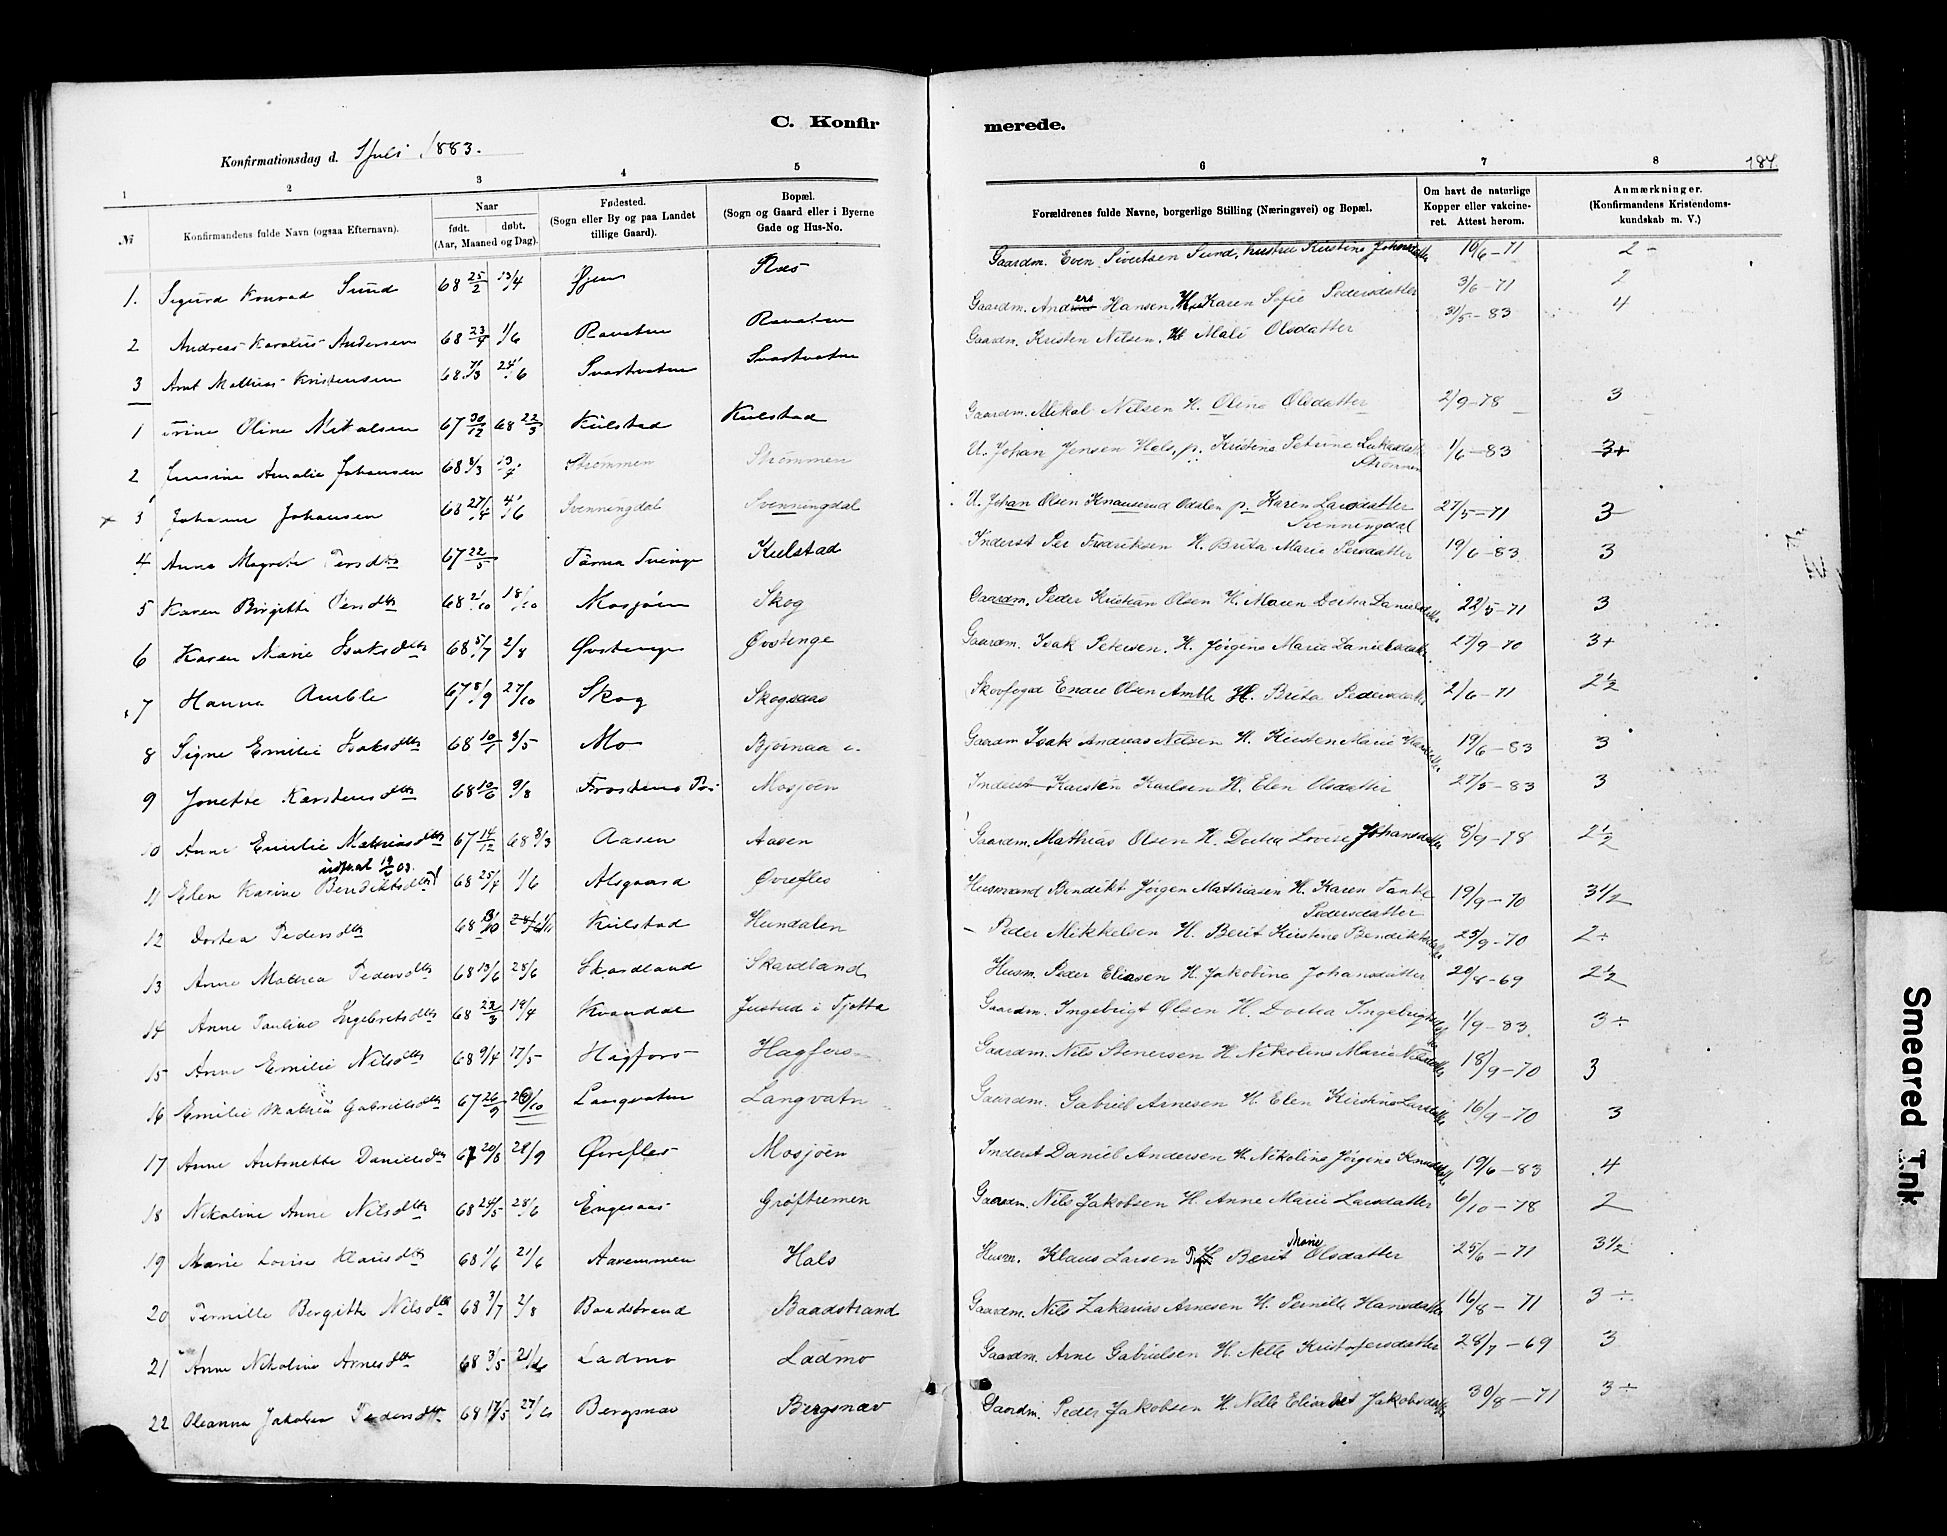 C. Konfirmerede.
187.
Konfirmationsdag d. 1 Juli 1883.
1 2 3 4 5 6 7 8
№
Konfirmandens fulde Navn (ogsaa Efternavn).
Naar
født. døbt.
(Aar, Maaned og Dag).
Fødested.
(Sogn eller By og paa Landet
tillige Gaard).
Bopæl.
(Sogn og Gaard eller i Byerne
Gade og Hus-No.
Forældrenes fulde Navne, borgerlige Stilling (Næringsvei) og Bopæl.
Om havt de naturlige
Kopper eller vakcine-
ret. Attest herom.
Anmærkninger.
(Konfirmandens Kristendoms-
kundskab m. V.)
1. Sigurd Konrad Sund 68 25/2 13/4 Øjen Ræs Gaardm. Even Sivertsen Sund, Hustru Kirstine Johansdatter 10/6-71 2-
2 Andreas Karolius Andersen 68 23/4 1/6 Ravatnn Ravatnn Gaardm. Anders Hansen, H. Karen Sofie Pedersdatter 3/6-71 2
3 Arnt Mathias Kristensen 68 7/3 24/6 Svartvatnn Svartvatnn Gaardm. Kristen Nilsen, H. Mali Olsdatter 31/5-83 4
1 Trine Oline Mikalsen 67 30/12 68 22/3 Kulstad Kulstad Gaardm. Mikal Nilsen H. Oline Olsdatter 2/9-78 3
2 Jensine Amalie Johansen 68 8/3 13/4 Strømmen Strømmen U. Johan Jensen Hals, p. Kristine Petrine Lukasdatter Strømmen 1/6-83 3+
3 Johanne Johansen 68 27/4 4/6 Svenningdal Svenningdal U. Johan Olsen Knauserud Odalen p. Karen Larsdatter Svenningdal 27/5-71 3
4 Anna Magrete Persdtr 67 22/5 Tärna Sverige Kulstad Inderst Per Fredriksen H. Brita Marie Persdatter 19/6-83 3
5 Karen Birgitte Persdtr 68 2/10 18/10 Mosjøen Skog Gaardm. Peder Kristian Olsen H. Maren Dortea Danielsdatter 22/5-71 3
6 Karen Marie Isaksdtr 68 5/7 2/8 Øvstenge Øvstenge Gaardm. Isak Petersen. H. Jørgine Marie Danielsdatter 27/9-70 3+
7 Hanna Amble 67 8/9 27/10 Skog Skogsaas Skovfoged Endre Olsen Amble H. Brita Pedersdatter 2/6-71 2½
8 Signe Emilie Isaksdtr 68 10/1 3/5 Mo Bjørnaa Gaardm Isak Andreas Nilsen H. Kirsten Marie 19/6-83 3
9 Jonette Karstensdtr 68 10/6 9/8 Mosjøen Inderst Karsten Karlsen H. Elen Olsdatter 27/5-83 3
10 Anne Emilie Mathiasdtr 67 14/12 68 8/3 Aasen Aasen Gaardm. Mathias Olsen H. Dortea Lovise Johansdatter 8/9-78 2½
11 Elen Karine Bendiktsdtr! udfl.at. 19/6 03. 68 25/4 1/6 Alsgaard Øvrefles Husmand Bendikt Jørgen Mathiasen H. Karen Tanke Pedersdatter 19/9-70 3½
12 Dortea Pedersdtr 68 13/10 Kulstad Hundalen Peder Mikkelsen H. Berit Kirstine Bendiktsdatter 25/9-70 2÷
13 Anne Mathea Pedersdtr 68 13/6 28/6 Skardland Skardland Husm. Peder Eliasen H. Jakobine Johansdatter 20/8-69 2½
14 Anne Pauline Ingebretsdtr 68 22/3 19/4 Kvandal Justad i Tjøtta Gaardm. Ingebrigt Olsen H. Dortea Ingebrigtsdatter 1/9-83 3÷
15 Anne Emilie Nilsdtr 68 9/4 17/5 Hagfors Hagfors Gaardm. Nils Stenersen H. Nikoline Marie Nilsdatter 18/9-70 3
16 Emilie Mathea Gabrielsdtr 67 26/9 20/10 Langvatnn Langvatn Gaardm. Gabriel Arnesen H. Elen Kirstine Larsdatter 16/9-70 3
17 Anne Antonette Danielsdtr 67 20/8 28/9 Øvrefles Mosjøen Inderst Daniel Andersen H. Nikoline Jørgine Knudsdatter 19/6-83 4
18 Nikoline Anne Nilsdtr 68 24/5 28/6 Engesaas Grøftremen Gaardm. Nils Jakobsen H. Anne Marie Larsdatter 6/10-78 2
19 Marie Lovise Klausdtr 68 1/6 21/6 Aaremmen Hals Husm. Klaus Larsen H Berit Marie Olsdatter 25/6-71 3½
20 Pernille Bergitte Nilsdtr 68 3/7 2/8 Baadstrand Baadstrand Gaardm. Nils Zakarias Arnesen H. Pernille Hansdatter 16/8-71 3÷
21 Anne Nikoline Arnesdtr 68 3/5 21/6 Ladmo Ladmo Gaardm. Arne Gabrielsen H. Nelle Kristofersdatter 28/7-69 3
22 Oleanna Jakobea Pedersdtr 68 17/5 27/6 Bergsnæv Bergsnæv Gaardm. Peder Jakobsen H. Nelle Elisabet Jakobsdatter 30/8-71 3÷
Smeared Ink